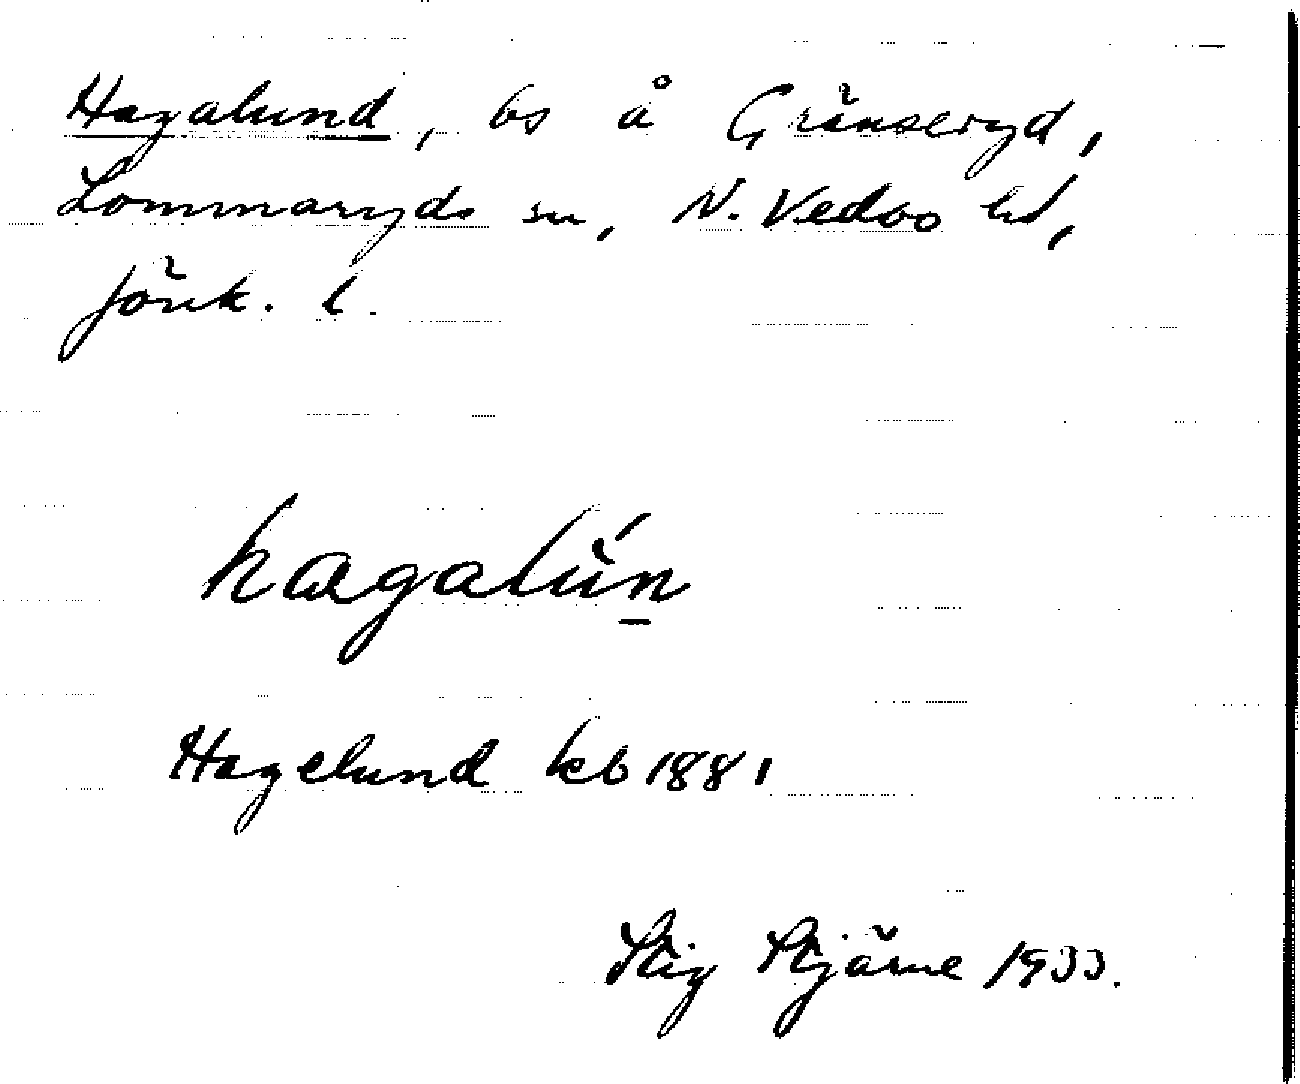 Hagalund, bs å Gränseryd,
Lommaryds sn, N. Vedbo hd,
Jönk. l.
hagalún
Hagelund kb 1881
Stig Stjärne 1933.